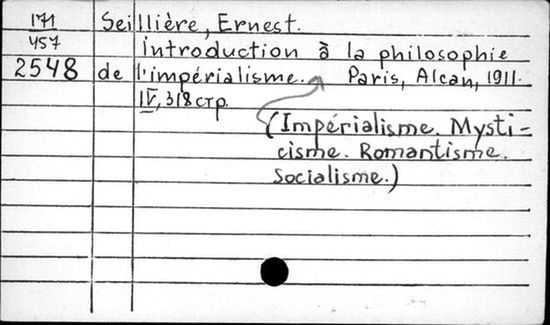 171 Seillière, Ernest.
457 Introduction à la philosophie
2548 de l'impérialisme. Paris, Alcan, 1911.
IV, 318 стр.
(Impérialisme. Mysti-
cisme. Romantisme.
Socialisme.)